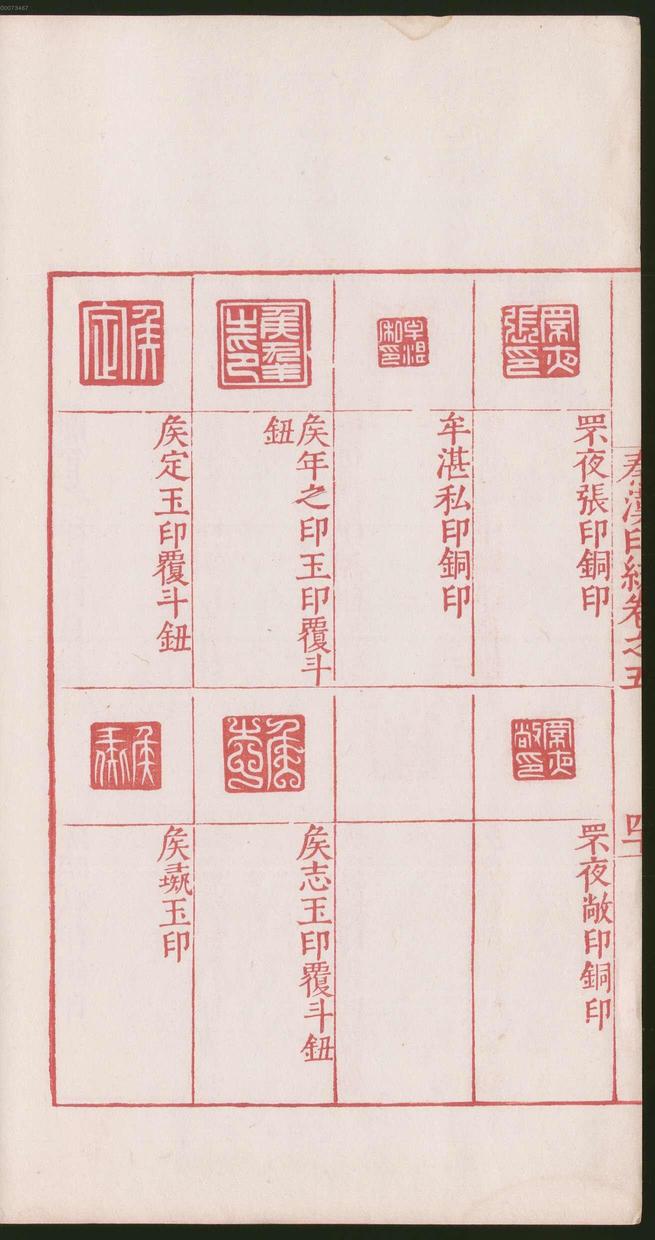 00073467
秦漢印統卷之五
四十
罘夜張印銅印
罘夜敞印銅印
牟湛私印銅印
矦年之印玉印覆斗
鈕
矦志玉印覆斗鈕
矦定玉印覆斗鈕
矦 玉印